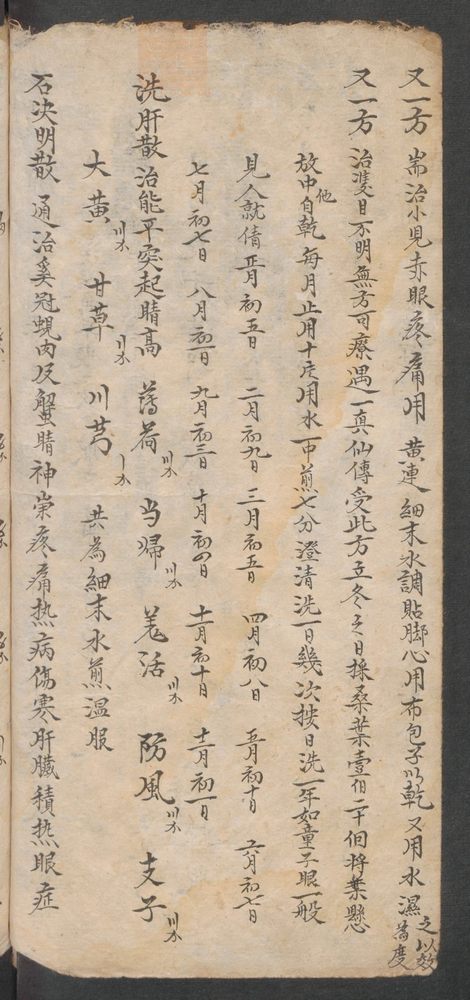 又一方 耑治小児赤眼疼痛用 黄連 細末水調貼脚心用布包子以乾 又用水濕之以效為度
又一方 治雙目不明無方可療遇一真仙傳受此方立冬之日採桑葉壹伯二十個將葉懸
放中他自乾 每月止用十片用水一中煎七分澄清洗一日幾次挍日洗一年如童子眼一般
見人就倩 正月初五日 二月初九日 三月初五日 四月初八日 五月初十日 六月初七日
七月初七日 八月初一日 九月初三日 十月初四日 十一月初十日 十二月初一日
洗肝散 治能平突起睛高 薄荷 当帰 羗活 防風 支子
大黄 甘草 川芎 共為細末水煎温服
石决明散 通治奚冠蜆肉及蟹睛神祟疼痛热病傷寒肝臟積热眼症